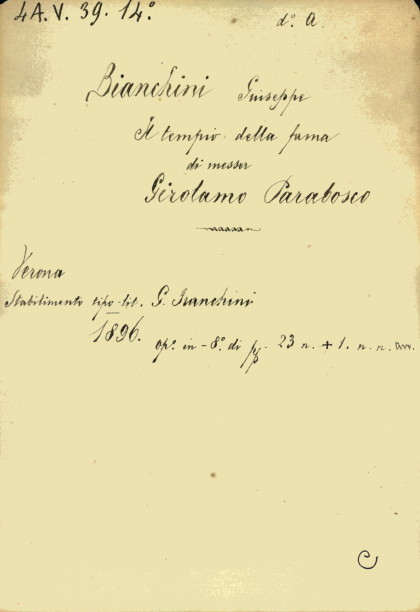 4A. V. 39. 14.°
d.° A.
Bianchini Giuseppe
Il tempio della fama
di messer
Girolamo Parabosco
Verona
Stabilimento tipo-lit. G. Franchini
1896.
op.° in-8.° di pp. 23 n. + 1. n. n.
C